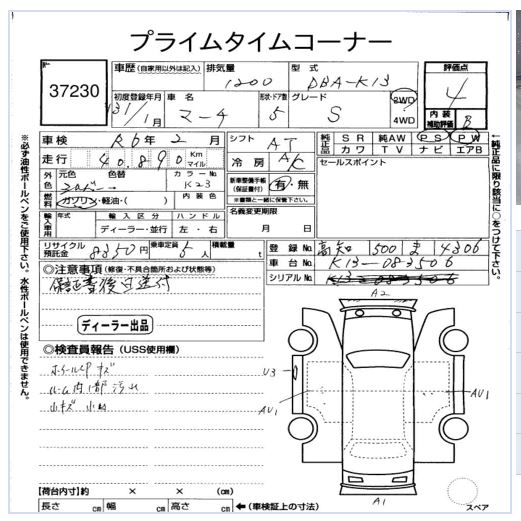 プライムタイムコーナー
37230
車歴 (自家用以外は記入) 排気量 1200 型式 DBA-K13
評価点 4
初度登録年月 月 車名 マーチ 形状・ドア数 5 グレード S 2WD 4WD
内装補助評価 B
車検 R6年 2月 シフト AT
純正品 SR 純AW PS PW カワ TV ナビ エアB
走行 40,890 Km マイル 冷房 AC
セールスポイント
外色 元色 色替 カラーNo K23
新車整備手帳 (保証書付) 有・無
※書類と一緒に保管下さい
燃料 ガソリン・軽油・( ) 内装色
名義変更期限 月 日
輸入車用 年式 輸入区分 ディーラー・並行 ハンドル 左・右
リサイクル預託金 8350円 乗車定員 5人 積載量 t
登録No. 高知 500 ま 4306
車台No. K13-083506
シリアルNo.
◎注意事項 (修復・不具合箇所および状態等)
保証書後日送付
ディーラー出品
◎検査員報告 (USS使用欄)
ホイールCP キズ
ルーム内 汚れ
小キズ
A2
U3
AU1
AU1
A1
スペア
【荷台内寸】約 × × (cm)
長さ cm 幅 cm 高さ cm ←(車検証上の寸法)
※必ず油性ボールペンをご使用下さい。水性ボールペンは使用できません。
←純正品に限り該当に○をつけて下さい。